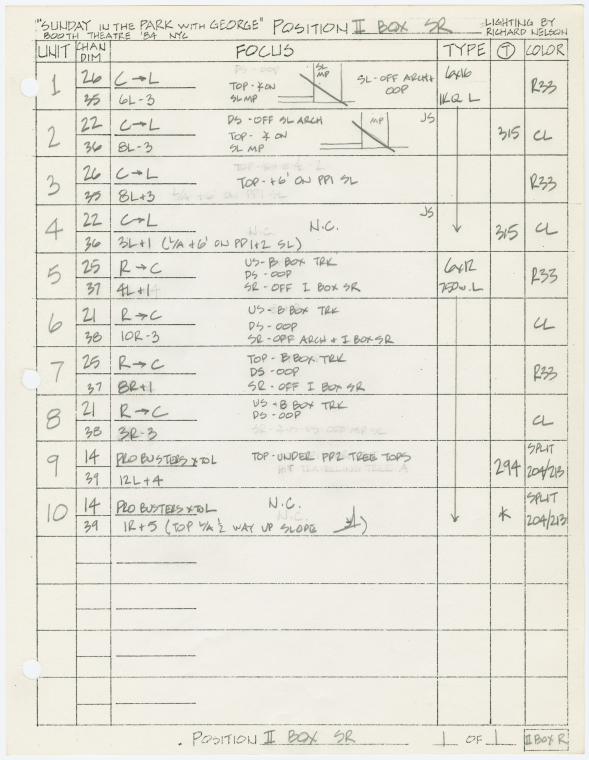 "SUNDAY IN THE PARK WITH GEORGE" POSITION II BOX SR LIGHTING BY
BOOTH THEATRE '84 NYC RICHARD NELSON
UNIT CHAN DIM FOCUS TYPE T COLOR
1 26 C→L TOP - ON SL MP SL - OFF ARCH + OOP 6x16 R33
35 6L-3 SL MP 1K Q L
2 22 C→L DS - OFF SL ARCH MP JS 315 CL
TOP - ON
36 8L-3 SL MP
3 26 C→L TOP - +6' ON PP1 SL R33
35 8L+3
4 22 C→L N.C. JS 315 CL
36 3L+1 (L/A +6' ON PP1+2 SL)
5 25 R→C US - B BOX TRK 6x12 R33
DS - OOP
37 4L+1 SR - OFF I BOX SR 750W. L
6 21 R→C US - B BOX TRK CL
DS - OOP
38 10R-3 SR - OFF ARCH + I BOX SR
7 25 R→C TOP - B BOX TRK R33
DS - OOP
37 8R+1 SR - OFF I BOX SR
8 21 R→C US + B BOX TRK CL
DS - OOP
38 3R-3
9 14 PRO BUSTERS XTOL TOP - UNDER PP2 TREE TOPS 294 SPLIT
39 12L+4 204/213
10 14 PRO BUSTERS XTOL N.C. * SPLIT
39 1R+5 (TOP L/A ½ WAY UP SLOPE) 204/213
POSITION II BOX SR 1 OF 1 II BOX R